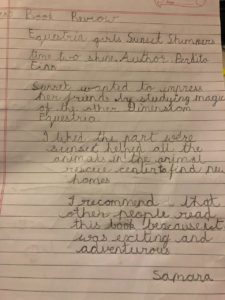 Book Review
Equestria girls Sunset Shimmers
time two shine Author Perdita
Finn
Sunset wanted to impress
her friends by studying magic
of the other Dimension
Equestria
I liked the part were
sunset helped all the
animals in the animal
rescue center to find new
homes
I recommend that
other people read
this book because it
was exciting and
adventurous
Samara